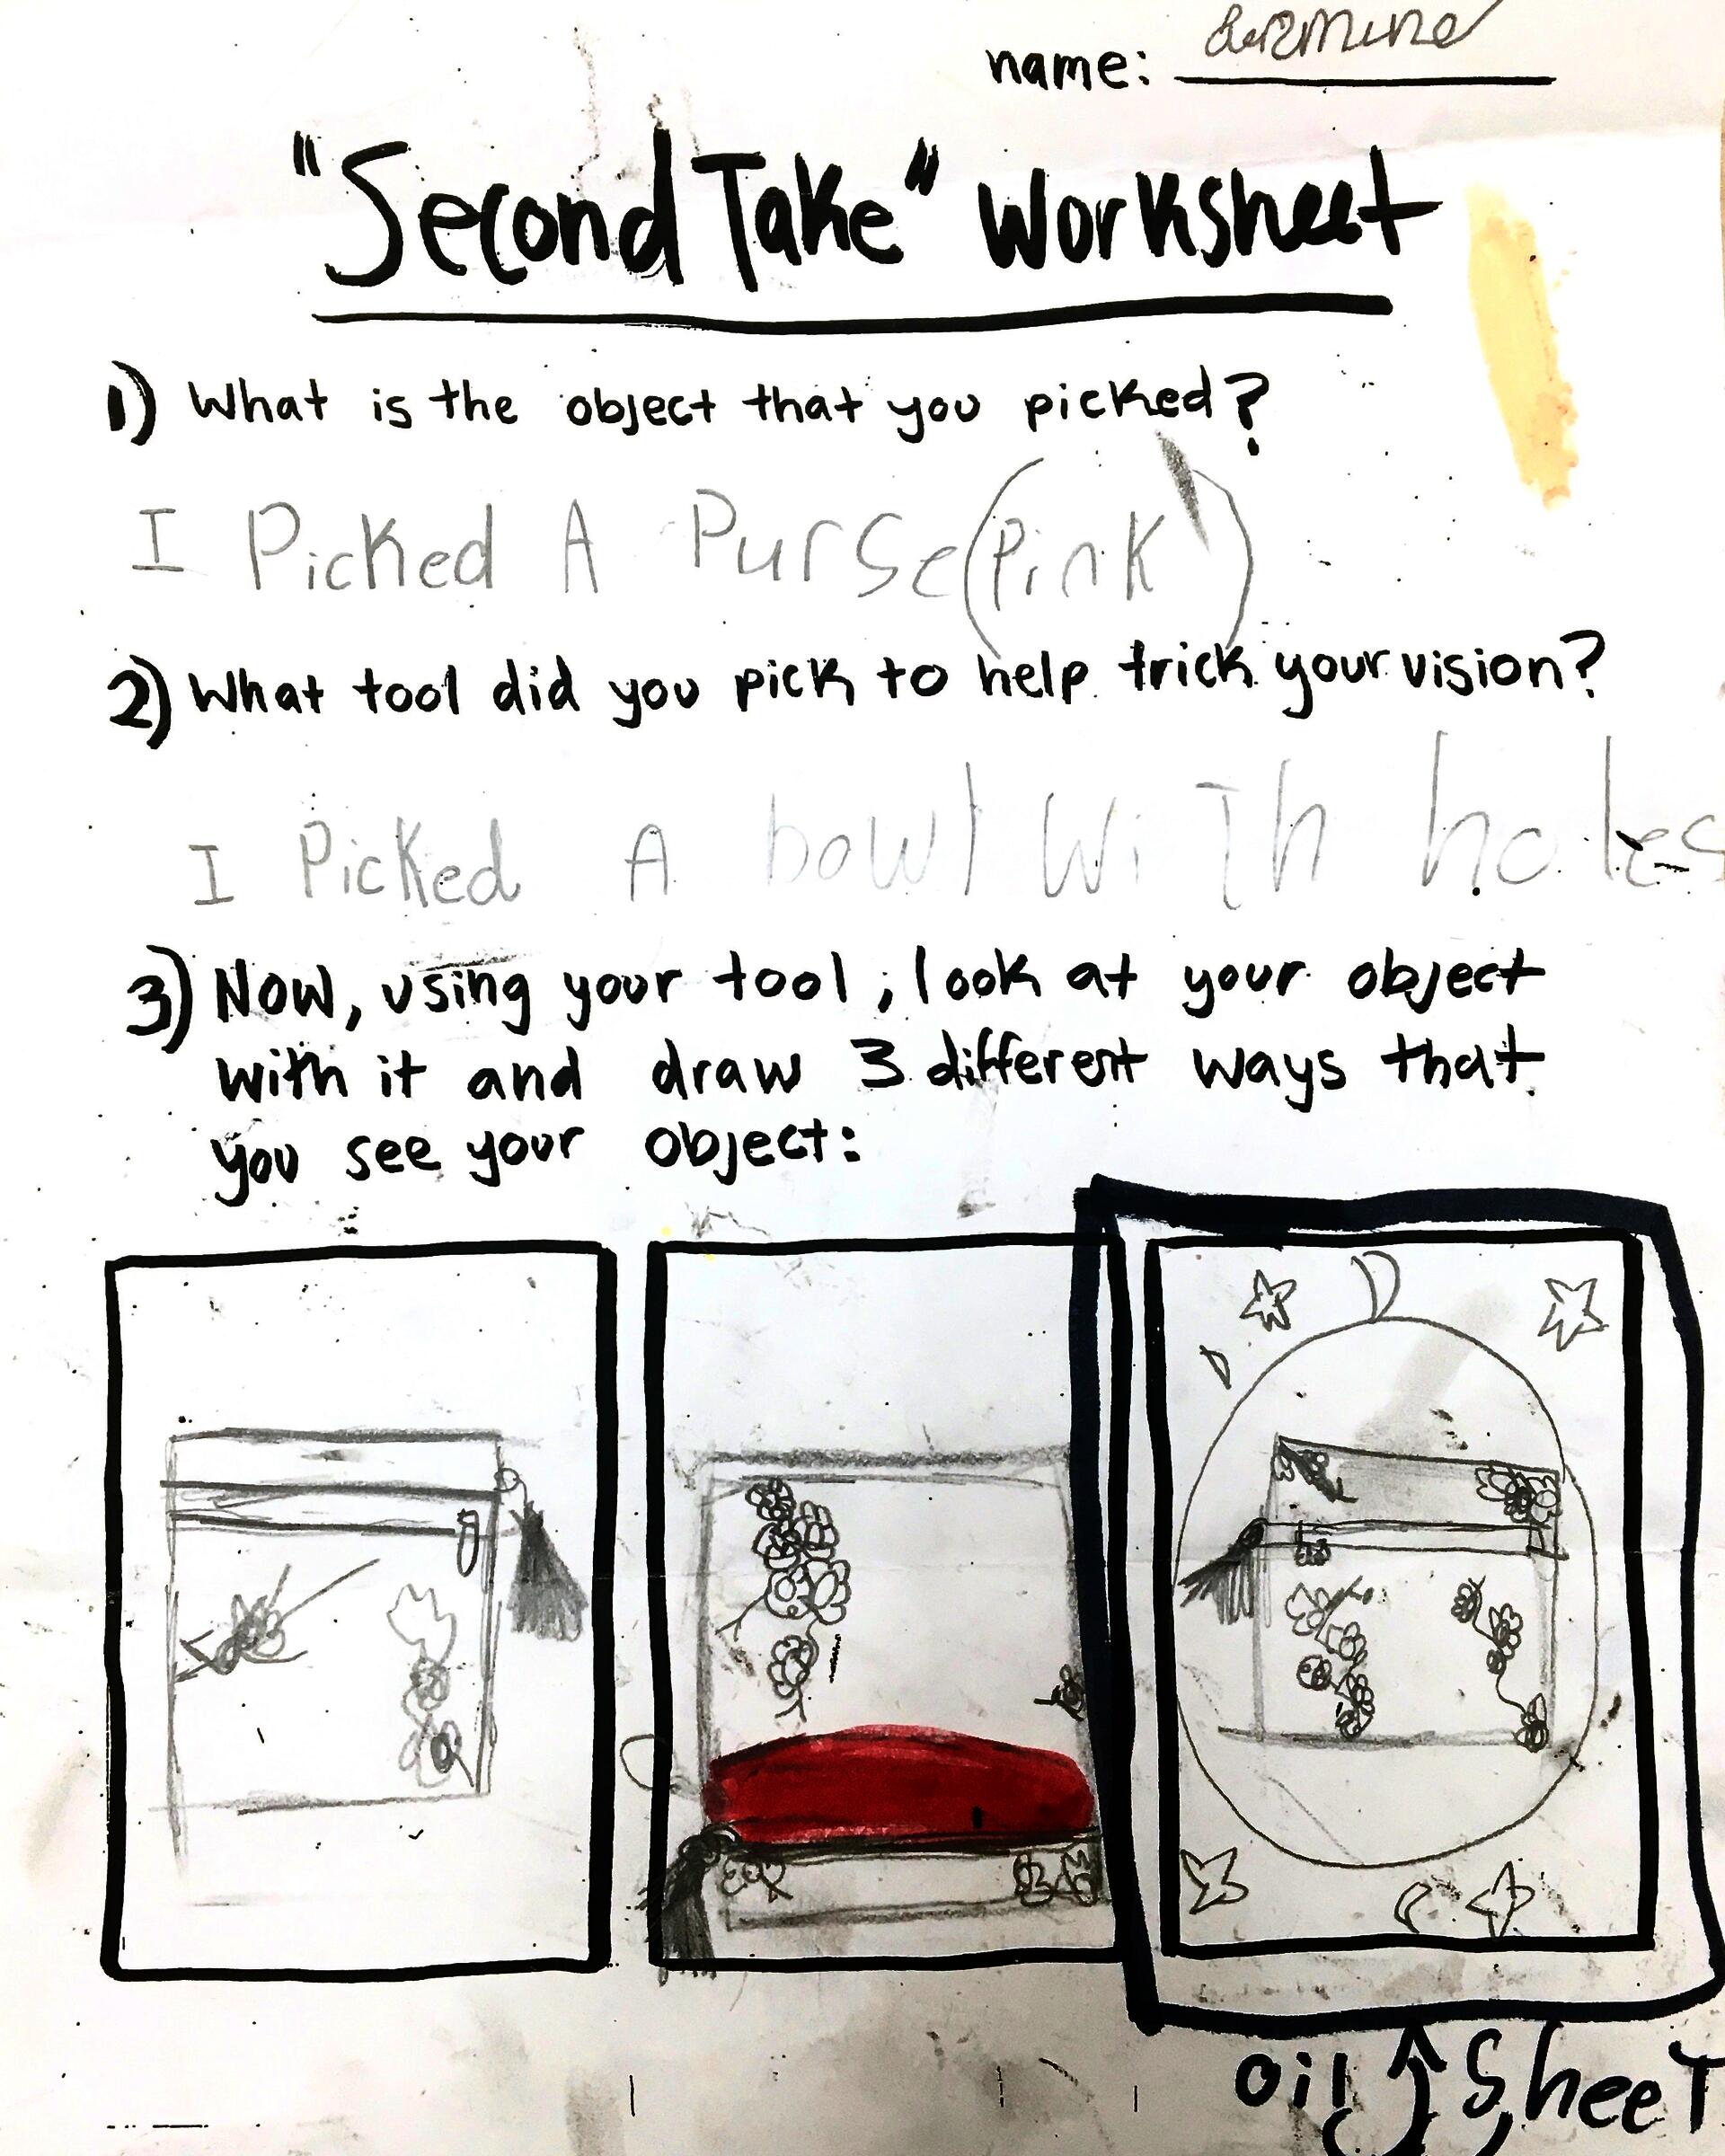 name:
"Second Take" Worksheet
1) What is the object that you picked?
I Picked A Purse (Pink)
2) What tool did you pick to help trick your vision?
I Picked A bowl wiTh holes
3) Now, using your tool, look at your object
with it and draw 3 different ways that
you see your object:
oil SheeT